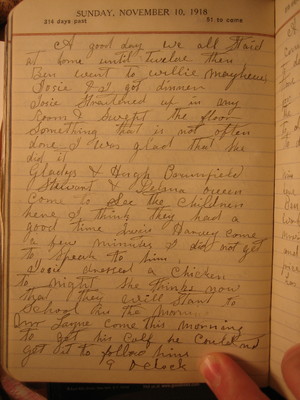 SUNDAY, NOVEMBER 10, 1918
314 days past
51 to come
A good day we all staid
at home until twelve then
Ben went to Willie Mayhew
Josie & I got dinner
Josie Straitened up in my
Room & Swept the floor
Something that is not often
done I was glad that she
did it
Gladys & Hugh
Stewart & Green
Come to See the Children
here I think they had a
good time Harvey come
a few minutes I did not get
to Speak to him
Josie dressed a Chicken
to night She thinks now
that they will Start to
School in the Morn
Layne come this Morning
to get his Calf he Could not
get it to follow him
9 O clock